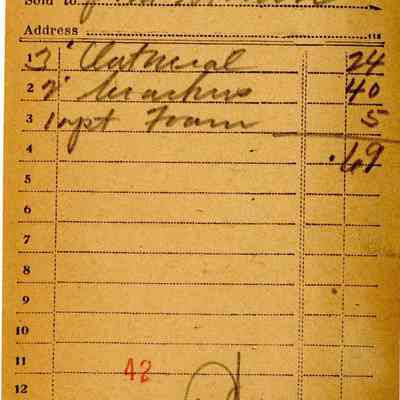 Sold to
Address 118
1 3 Oatmeal 24
2 2 Crackers 40
3 1 pt Foam 5
4 .69
5
6
7
8
9
10
11 42
12